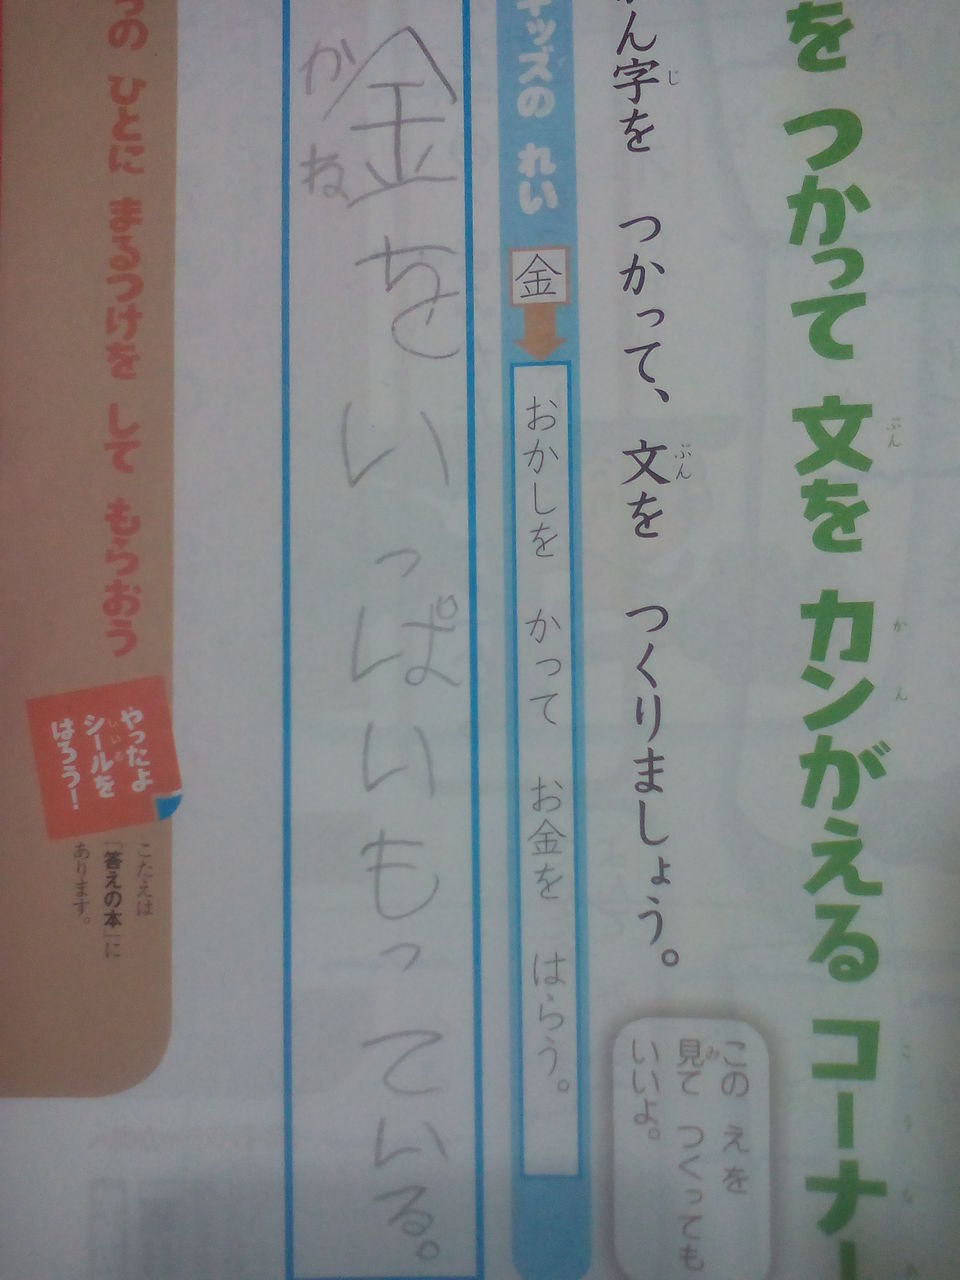 を つかって 文を カンがえる コーナー
ぶん
かん
こうなあ
ん字を つかって、 文を つくりましょう。
じ
ぶん
この えを
見て つくっても
み
いいよ。
ッズの れい
金
おかしを かって お金を はらう。
金をいっぱいもっている。
かね
の ひとに まるつけを して もらおう
やったよ
シールを
はろう!
こたえは
「答えの本」に
あります。